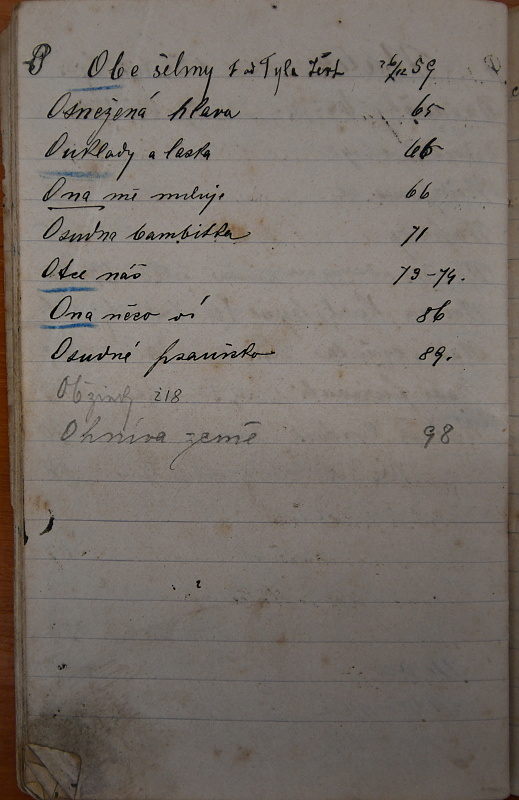 Obe šelmy od Tyla 59
Osnežená hlava 65
Ouklady a laska 66
Ona mě miluje 66
Osudna bambitka 71
Otce náš 73-74.
Ona něco ví 86
Osudné psaníčko 89.
118
Ohniva země 98